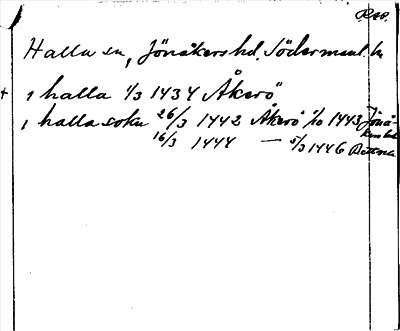 Rec.
Halla sn, Jönåkers hd, Södermanl. ln
+ i halla 1/3 1434 Åkerö
i halla sokn 26/3 1442 Åkerö 1/10 1443 Jönå-
kers hd
16/3 1444 — 5/3 1446